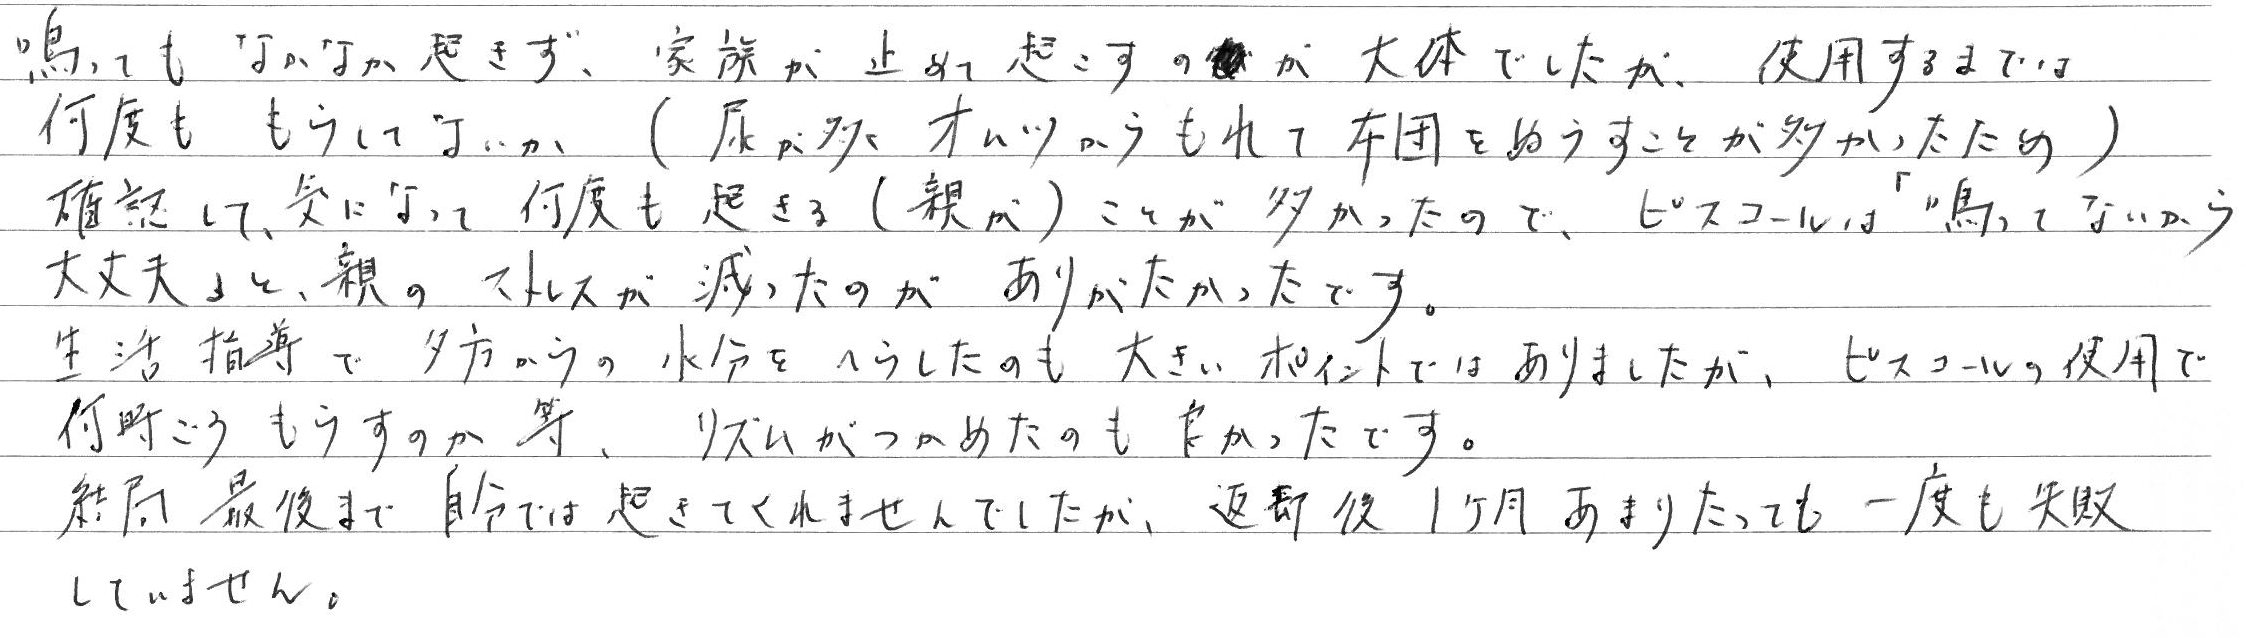 鳴ってもなかなか起きず、家族が止めて起こすのが大体でしたが、使用するまでは
何度ももらしてないか、(尿が多くオムツからもれて布団をぬらすことが多かったため)
確認して、気になって何度も起きる(親が)ことが多かったので、ピスコールは「鳴ってないから
大丈夫」と、親のストレスが減ったのがありがたかったです。
生活指導で夕方からの水分をへらしたのも大きいポイントではありましたが、ピスコールの使用で
何時ごろもらすのか等、リズムがつかめたのも良かったです。
結局最後まで自分では起きてくれませんでしたが、返却後1ケ月あまりたっても一度も失敗
していません。